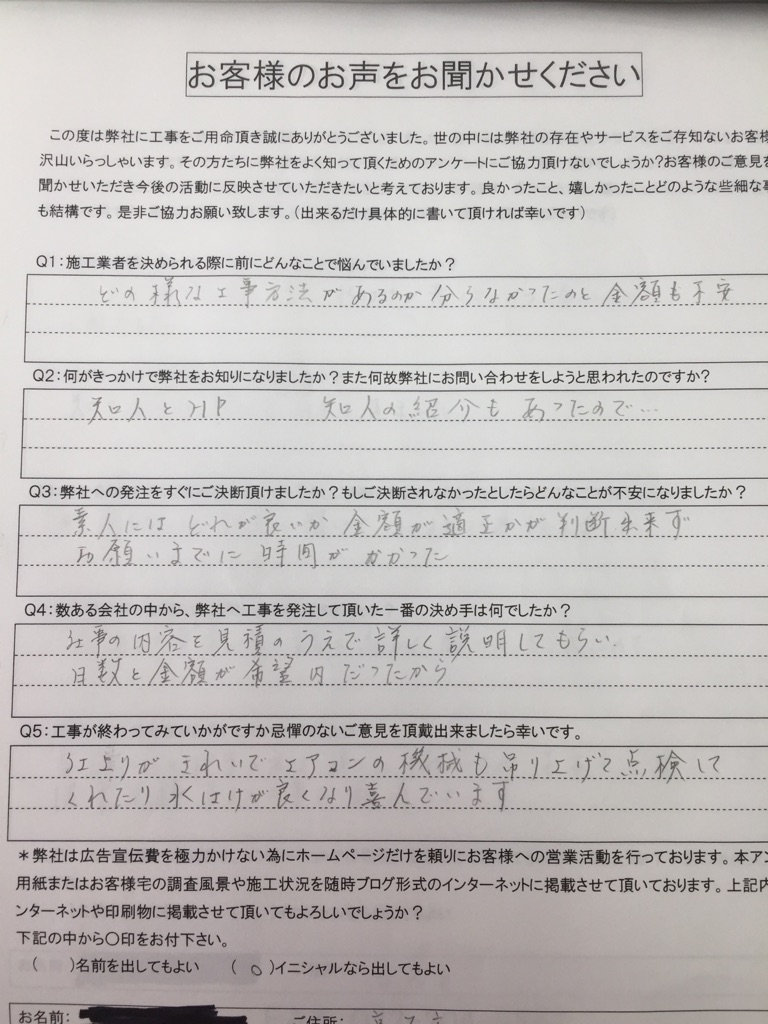 お客様のお声をお聞かせください
この度は弊社に工事をご用命頂き誠にありがとうございました。世の中には弊社の存在やサービスをご存知ないお客様
沢山いらっしゃいます。その方たちに弊社をよく知って頂くためのアンケートにご協力頂けないでしょうか?お客様のご意見を
聞かせいただき今後の活動に反映させていただきたいと考えております。良かったこと、嬉しかったことどのような些細な事
も結構です。是非ご協力お願い致します。(出来るだけ具体的に書いて頂ければ幸いです)
Q1:施工業者を決められる際に前にどんなことで悩んでいましたか?
どの様な工事方法があるのか分らなかったのと金額も不安
Q2:何がきっかけで弊社をお知りになりましたか?また何故弊社にお問い合わせをしようと思われたのですか?
知人とHP 知人の紹介もあったので…
Q3:弊社への発注をすぐにご決断頂けましたか?もしご決断されなかったとしたらどんなことが不安になりましたか?
素人にはどれが良いか金額が適正かが判断出来ず
お願いまでに時間がかかった
Q4:数ある会社の中から、弊社へ工事を発注して頂いた一番の決め手は何でしたか?
仕事の内容を見積のうえで詳しく説明してもらい
日数と金額が希望内だったから
Q5:工事が終わってみていかがですか忌憚のないご意見を頂戴出来ましたら幸いです。
仕上りがきれいでエアコンの機械も吊り上げて点検して
くれたり水はけが良くなり喜んでいます
*弊社は広告宣伝費を極力かけない為にホームページだけを頼りにお客様への営業活動を行っております。本アン
用紙またはお客様宅の調査風景や施工状況を随時ブログ形式のインターネットに掲載させて頂いております。上記内
ンターネットや印刷物に掲載させて頂いてもよろしいでしょうか?
下記の中から〇印をお付下さい。
( )名前を出してもよい (○)イニシャルなら出してもよい
お名前: ご住所: